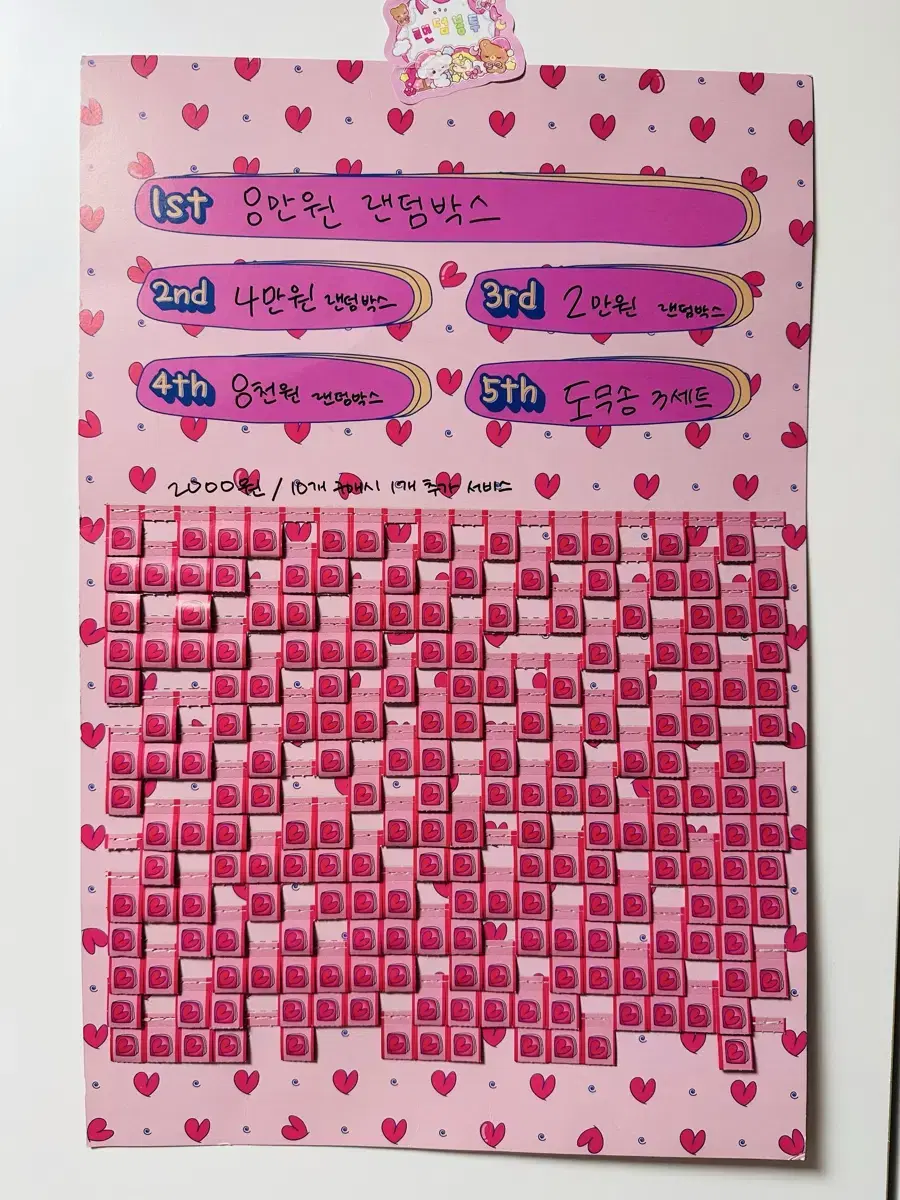 랜덤봉투
1st 8만원 랜덤박스
2nd 4만원 랜덤박스
3rd 2만원 랜덤박스
4th 8천원 랜덤박스
5th 도무송 3세트
2000원 / 10개 구매시 1개 추가 서비스